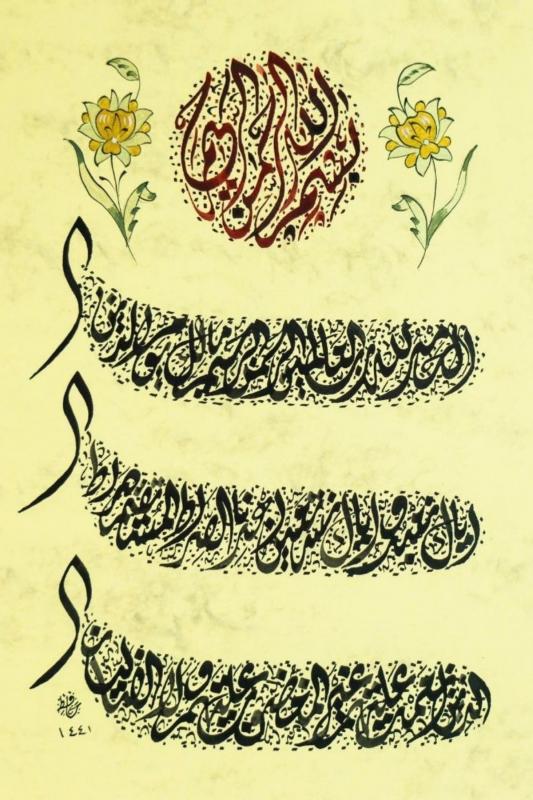 بسم الله الرحمن الرحيم
الحمد لله رب العالمين الرحمن الرحيم مالك يوم الدين
اياك نعبد واياك نستعين اهدنا الصراط المستقيم صراط
الذين انعمت عليهم غير المغضوب عليهم ولا الضالين
١٤٤١